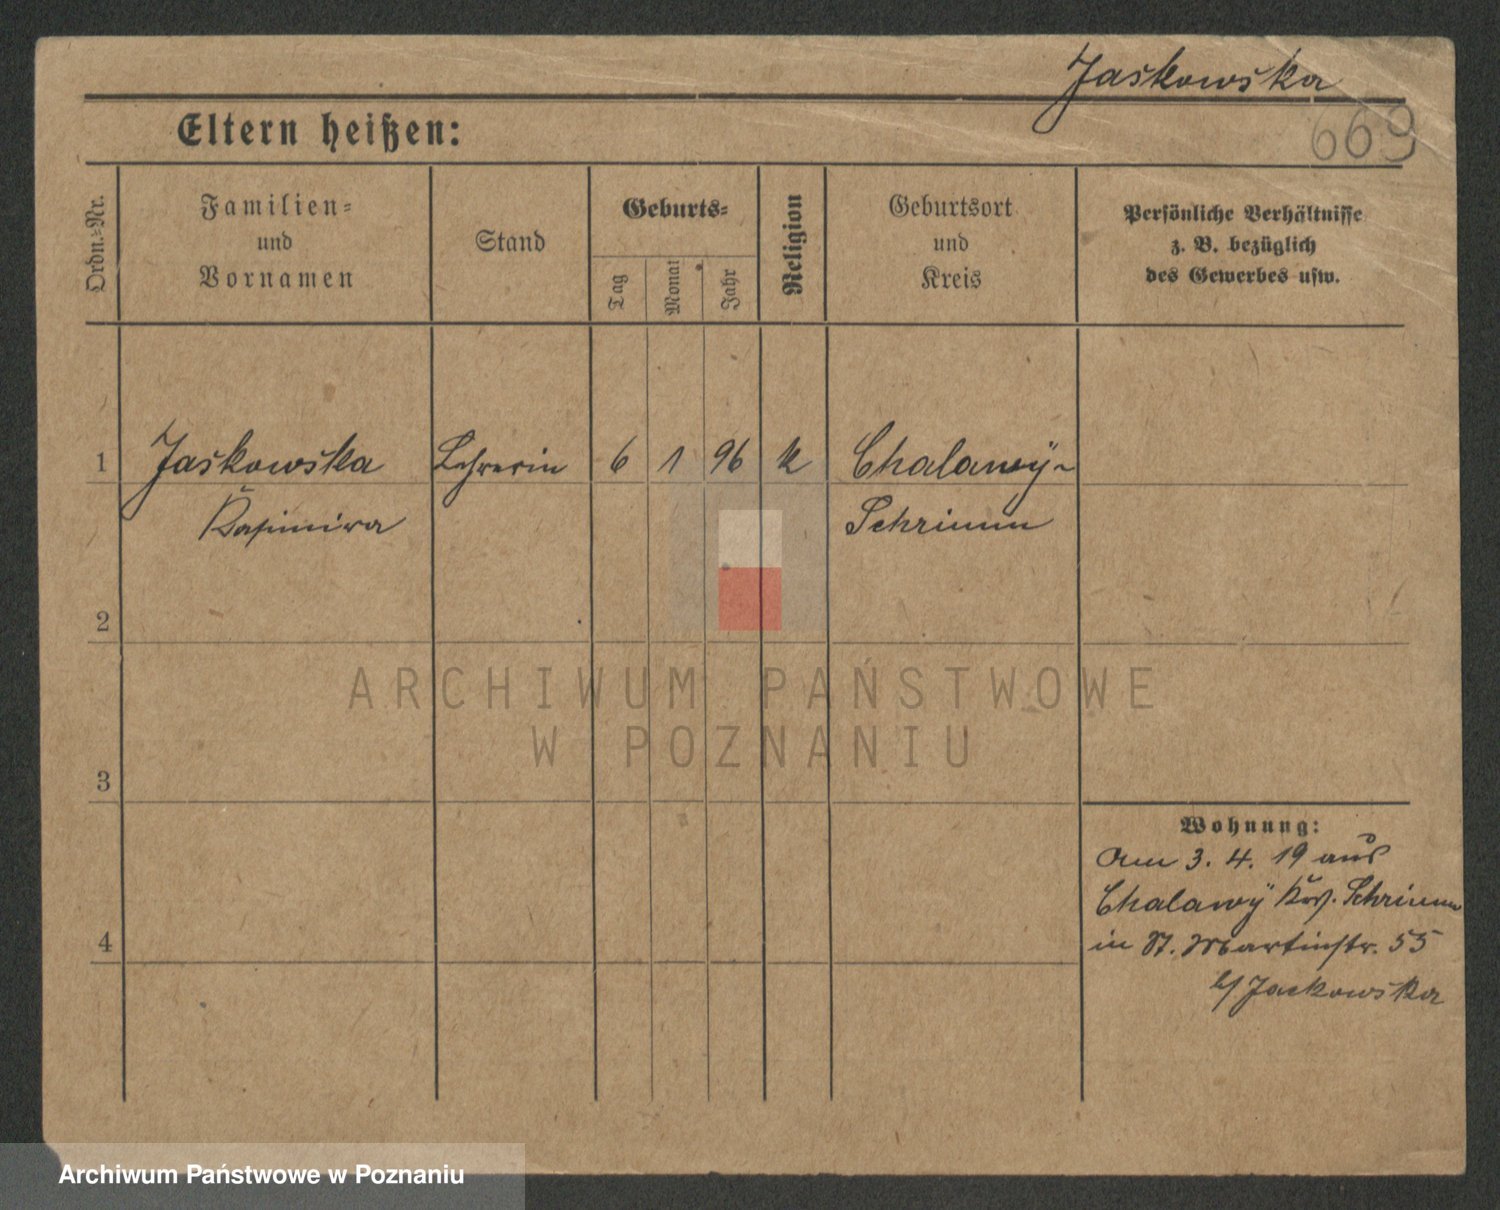 Jaśkowska
669
Eltern heißen:
Ordn.-Nr.
Familien-
und
Vornamen
Stand
Geburts-
Tag
Monat
Jahr
Religion
Geburtsort
und
Kreis
Persönliche Verhältnisse
z. B. bezüglich
des Gewerbes usw.
1 Jaśkowska Lehrerin 6 1 96 k Chalawÿ-
Kasimira Schrimm
2
3
4
ARCHIWUM PAŃSTWOWE
W POZNANIU
Wohnung:
Am 3. 4. 19 aus
Chalawÿ Krs. Schrimm
in St. Martinstr. 55
b/ Jaskowska
Archiwum Państwowe w Poznaniu